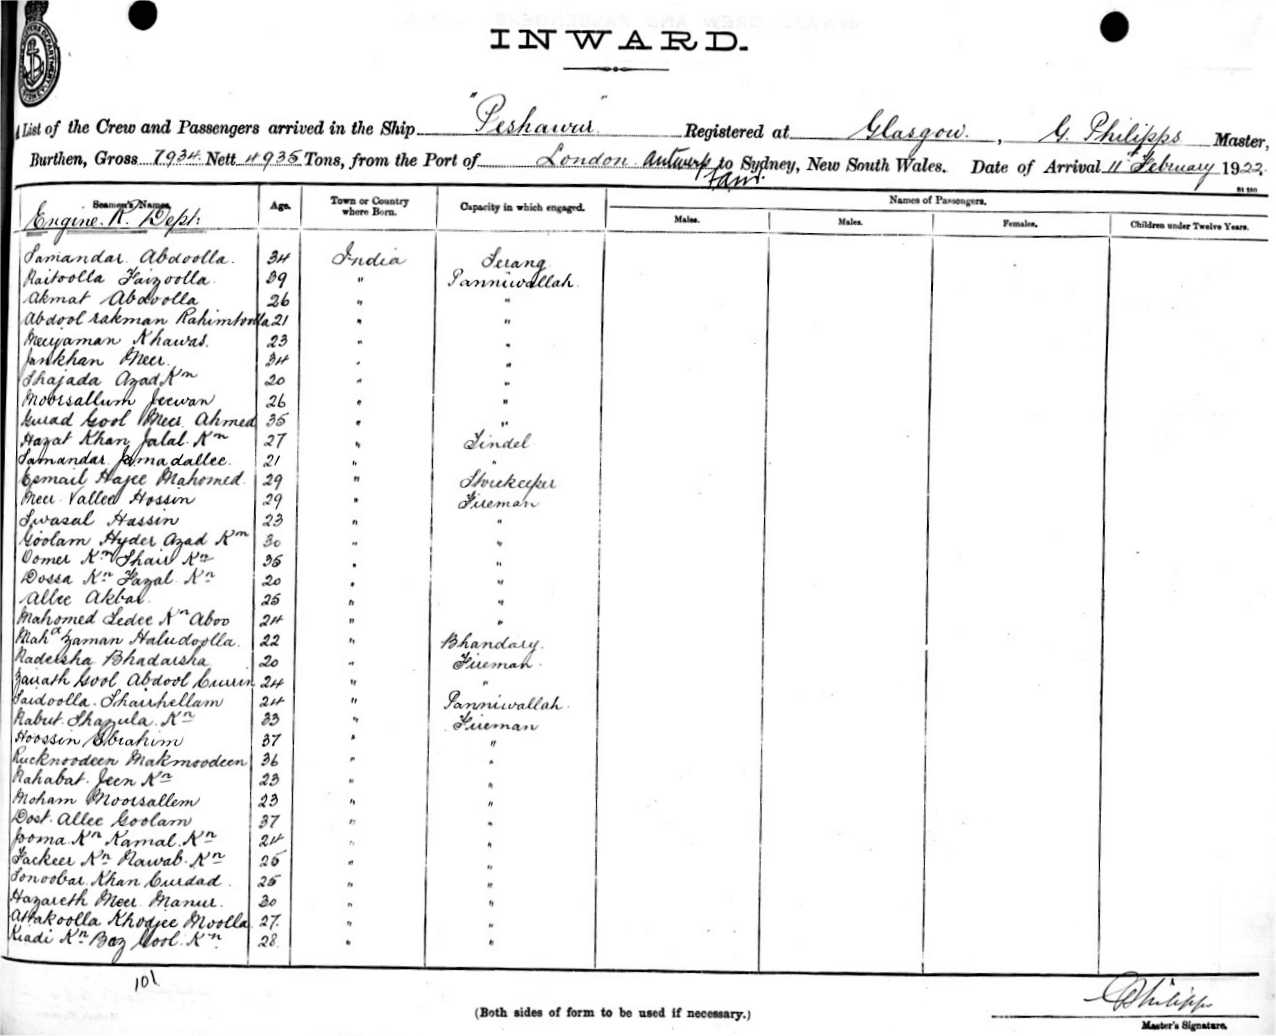 INWARD.
List of the Crew and Passengers arrived in the Ship "Peshawur" Registered at Glasgow, G. Philipps Master,
Burthen, Gross 7934 Nett 4935 Tons, from the Port of London Antwerp to Sydney, New South Wales. Date of Arrival 11th February 1922.
Seamen's Names. Age. Town or Country where Born. Capacity in which engaged. Names of Passengers.
Males. Males. Females. Children under Twelve Years.
Engine R. Dept:
Samandar Abdoolla. 34 India Serang
Raitoolla Faizoolla. 39 " Panniwallah.
Akmat Abdoolla 26 " "
Abdool rakman Rahimtoolla 21 " "
Meeyaman Khawas. 23 " "
Jankhan Meer. 34 " "
Shajada Azad Kn 20 " "
Moorsallum Jeewan 26 " "
Gurad Gool Meer Ahmed 35 " "
Hazat Khan Jalal Kn 27 " Tindel
Samandar Jamadallee. 21 " "
Esmail Hajee Mahomed. 29 " Storekeeper
Meer Vallee Hossin 29 " Fireman
Swasal Hassin 23 " "
Goolam Hyder Azad Kn 30 " "
Oomer Kn Shair Kn 35 " "
Dossa Kn Fazal Kn 20 " "
Allee Akbar. 25 " "
Mahomed Sedee Kn Aboo 24 " "
Mahd Zaman Haludoolla. 22 " Bhandary.
Nadersha Bhadarsha 20 " Fireman.
Gool Abdool 24 " "
Saidoolla Shairhellam 24 " Panniwallah.
Rabut Shazula Kn 33 " Fireman
Hoossin Ebrahim 37 " "
Rucknoodeen Makmoodeen 36 " "
Rahabat Jeen Kn 23 " "
Moham Moorsallem 23 " "
Dost Allee Goolam 37 " "
Jooma Kn Kamal Kn 24 " "
Fackeer Kn Nawab Kn 25 " "
Sonoobar Khan Curdad. 25 " "
Hazareth Meer Manur. 30 " "
Attakoolla Khodjee Moolla 27. " "
Kiadi Kn Baz Gool Kn 28. " "
101
(Both sides of form to be used if necessary.)
G Philipps
Master's Signature.